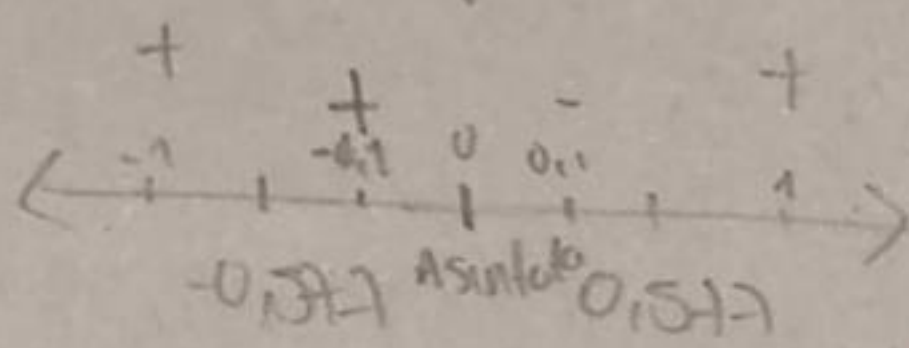 + + - +
-1 -0,1 0 0,1 1
-0,577 Asintota 0,577